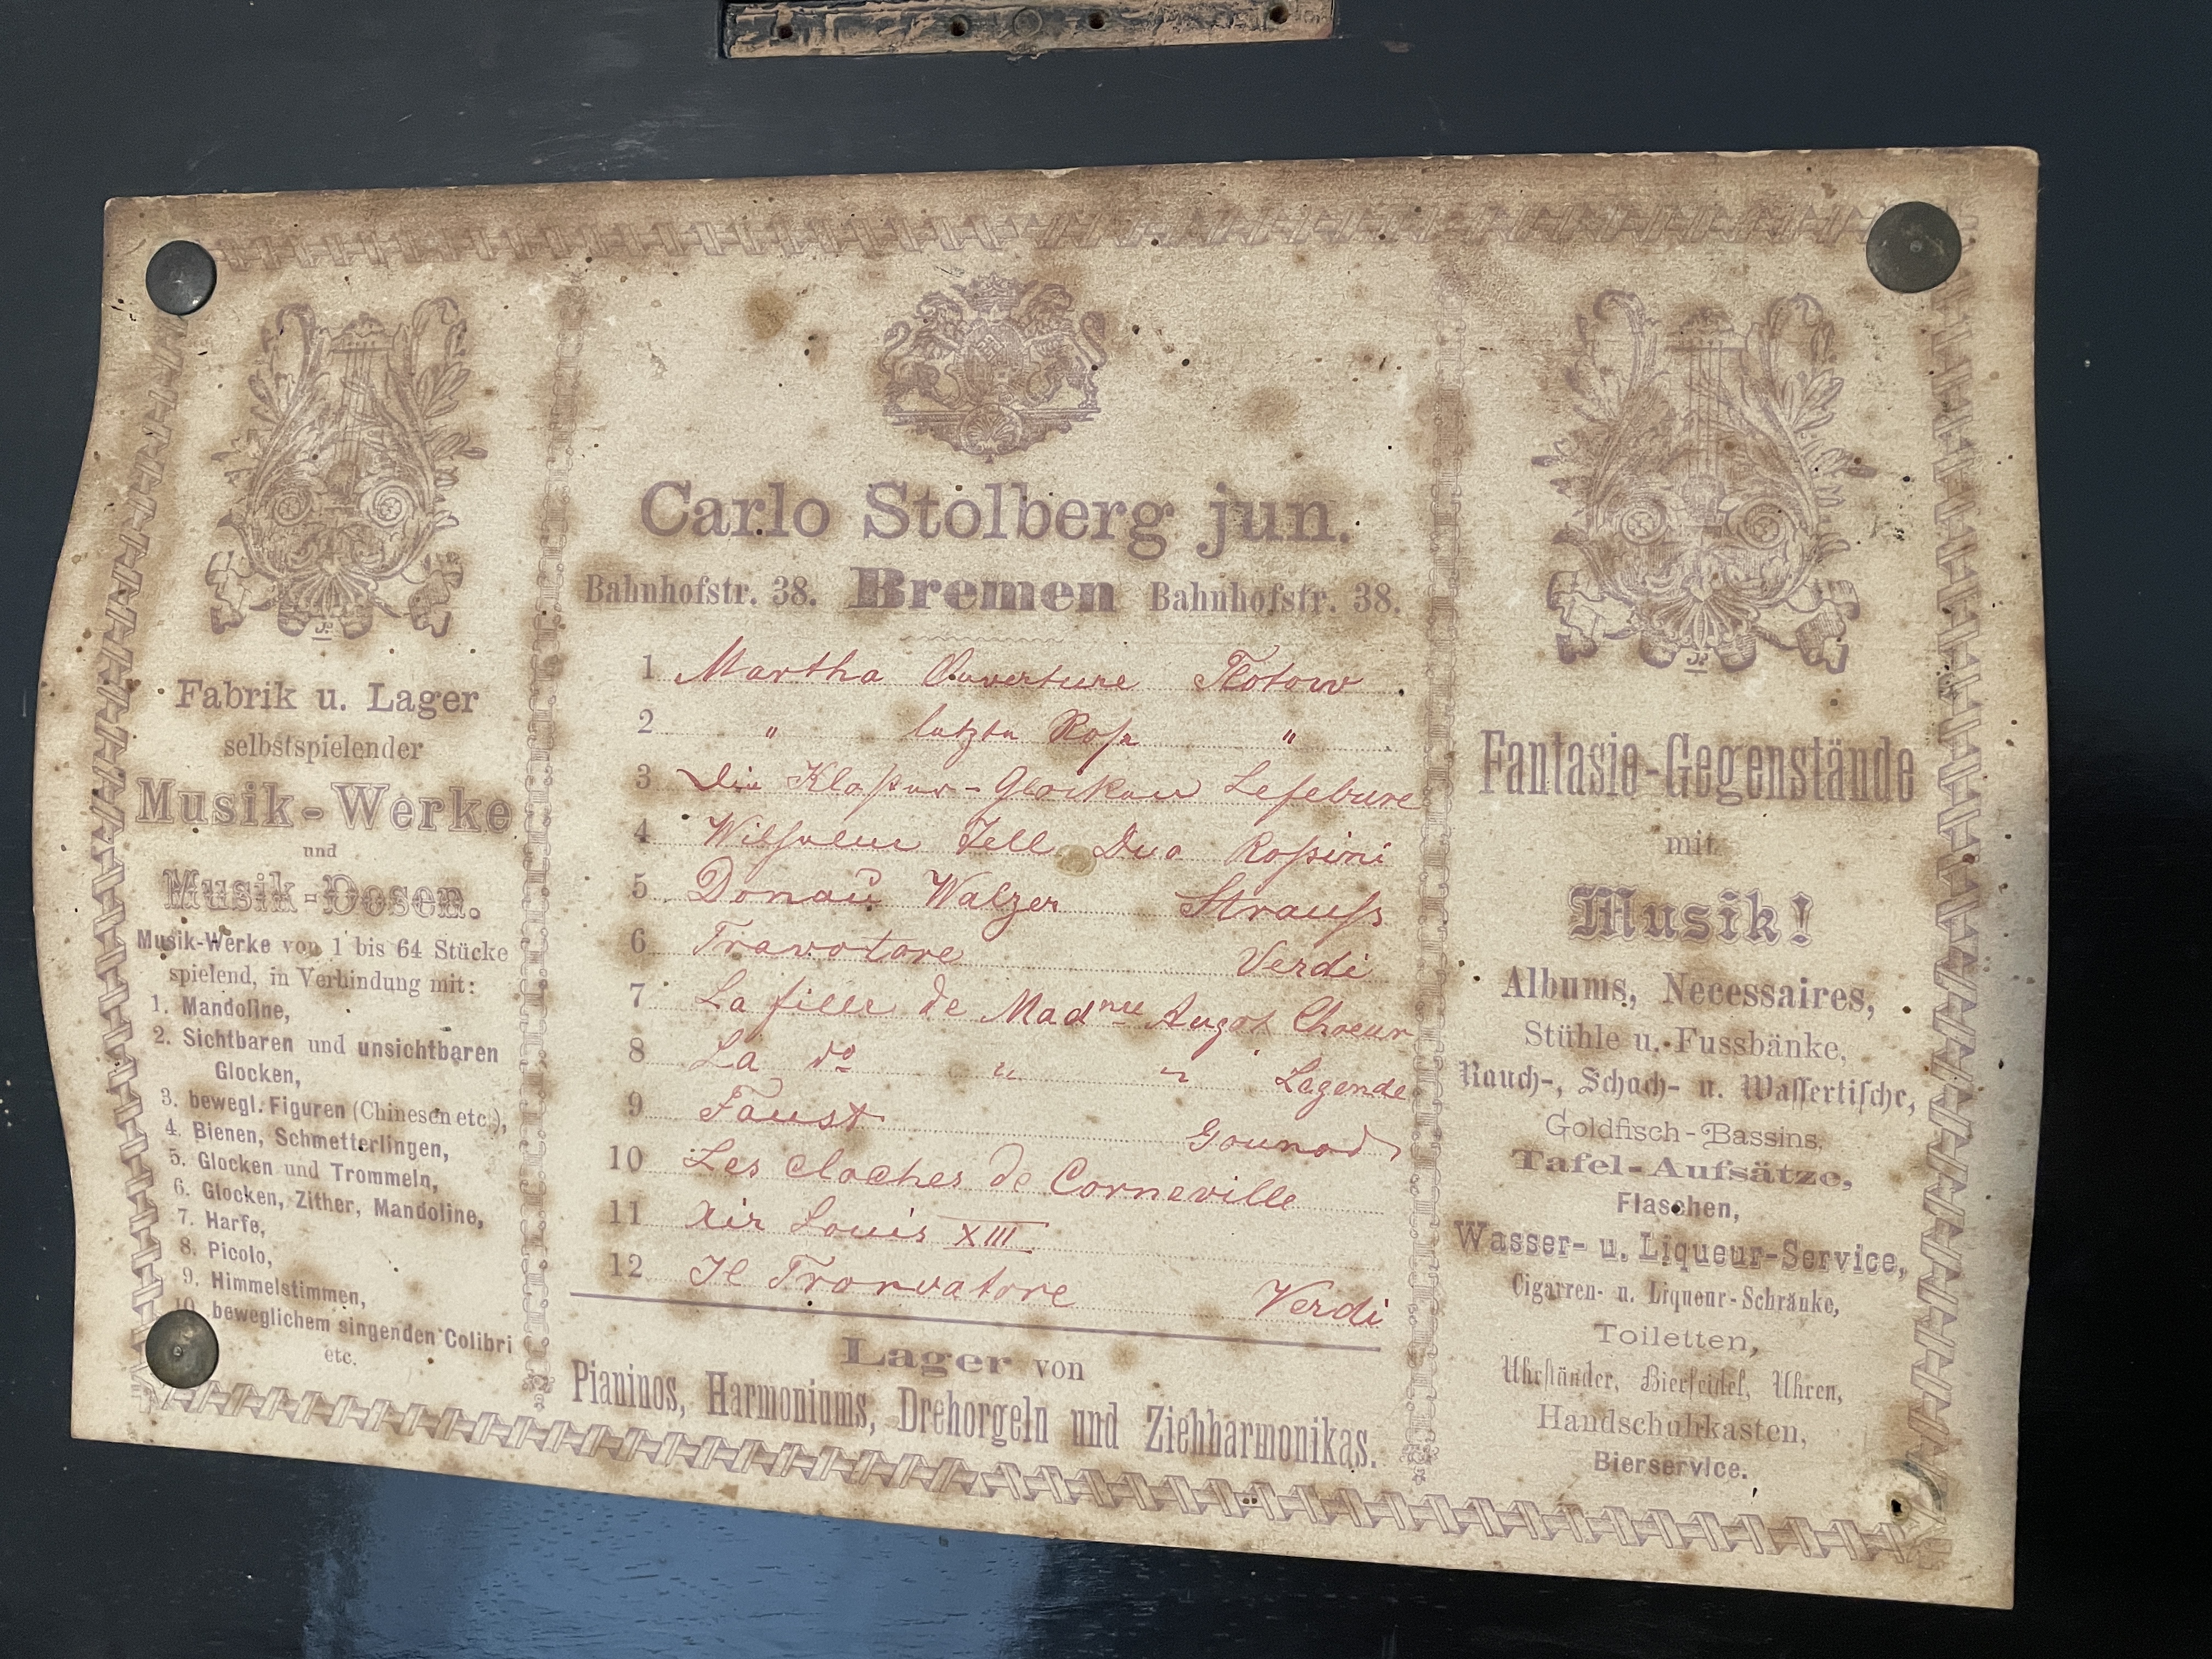 Carlo Stolberg jun.
Bahnhofstr. 38. Bremen Bahnhofstr. 38.
1 Martha Ouverture Flotow
2 " letzte Rose "
3 Die Kloster-Glocken Lefebure
4 Wilhelm Tell Duo Rossini
5 Donau Walzer Strauss
6 Travotore Verdi
7 La fille de Mad me Angot Choeur
8 La do " " Legende
9 Faust Gounod
10 Les cloches de Corneville
11 Air Louis XIII
12 Il Trorvatore Verdi
Lager von
Pianinos, Harmoniums, Drehorgeln und Ziehharmonikas.
Fabrik u. Lager
selbstspielender
Musik-Werke
und
Musik-Dosen.
Musik-Werke von 1 bis 64 Stücke
spielend, in Verbindung mit:
1. Mandoline,
2. Sichtbaren und unsichtbaren
Glocken,
3. bewegl. Figuren (Chinesen etc.),
4. Bienen, Schmetterlingen,
5. Glocken und Trommeln,
6. Glocken, Zither, Mandoline,
7. Harfe,
8. Picolo,
9. Himmelstimmen,
10. beweglichem singenden Colibri
etc.
Fantasie-Gegenstände
mit
Musik!
Albums, Necessaires,
Stühle u. Fussbänke,
Rauch-, Schach- u. Wassertische,
Goldfisch-Bassins,
Tafel-Aufsätze,
Flaschen,
Wasser- u. Liqueur-Service,
Cigarren- u. Liqueur-Schränke,
Toiletten,
Uhrständer, Bierseidel, Uhren,
Handschuhkasten,
Bierservice.